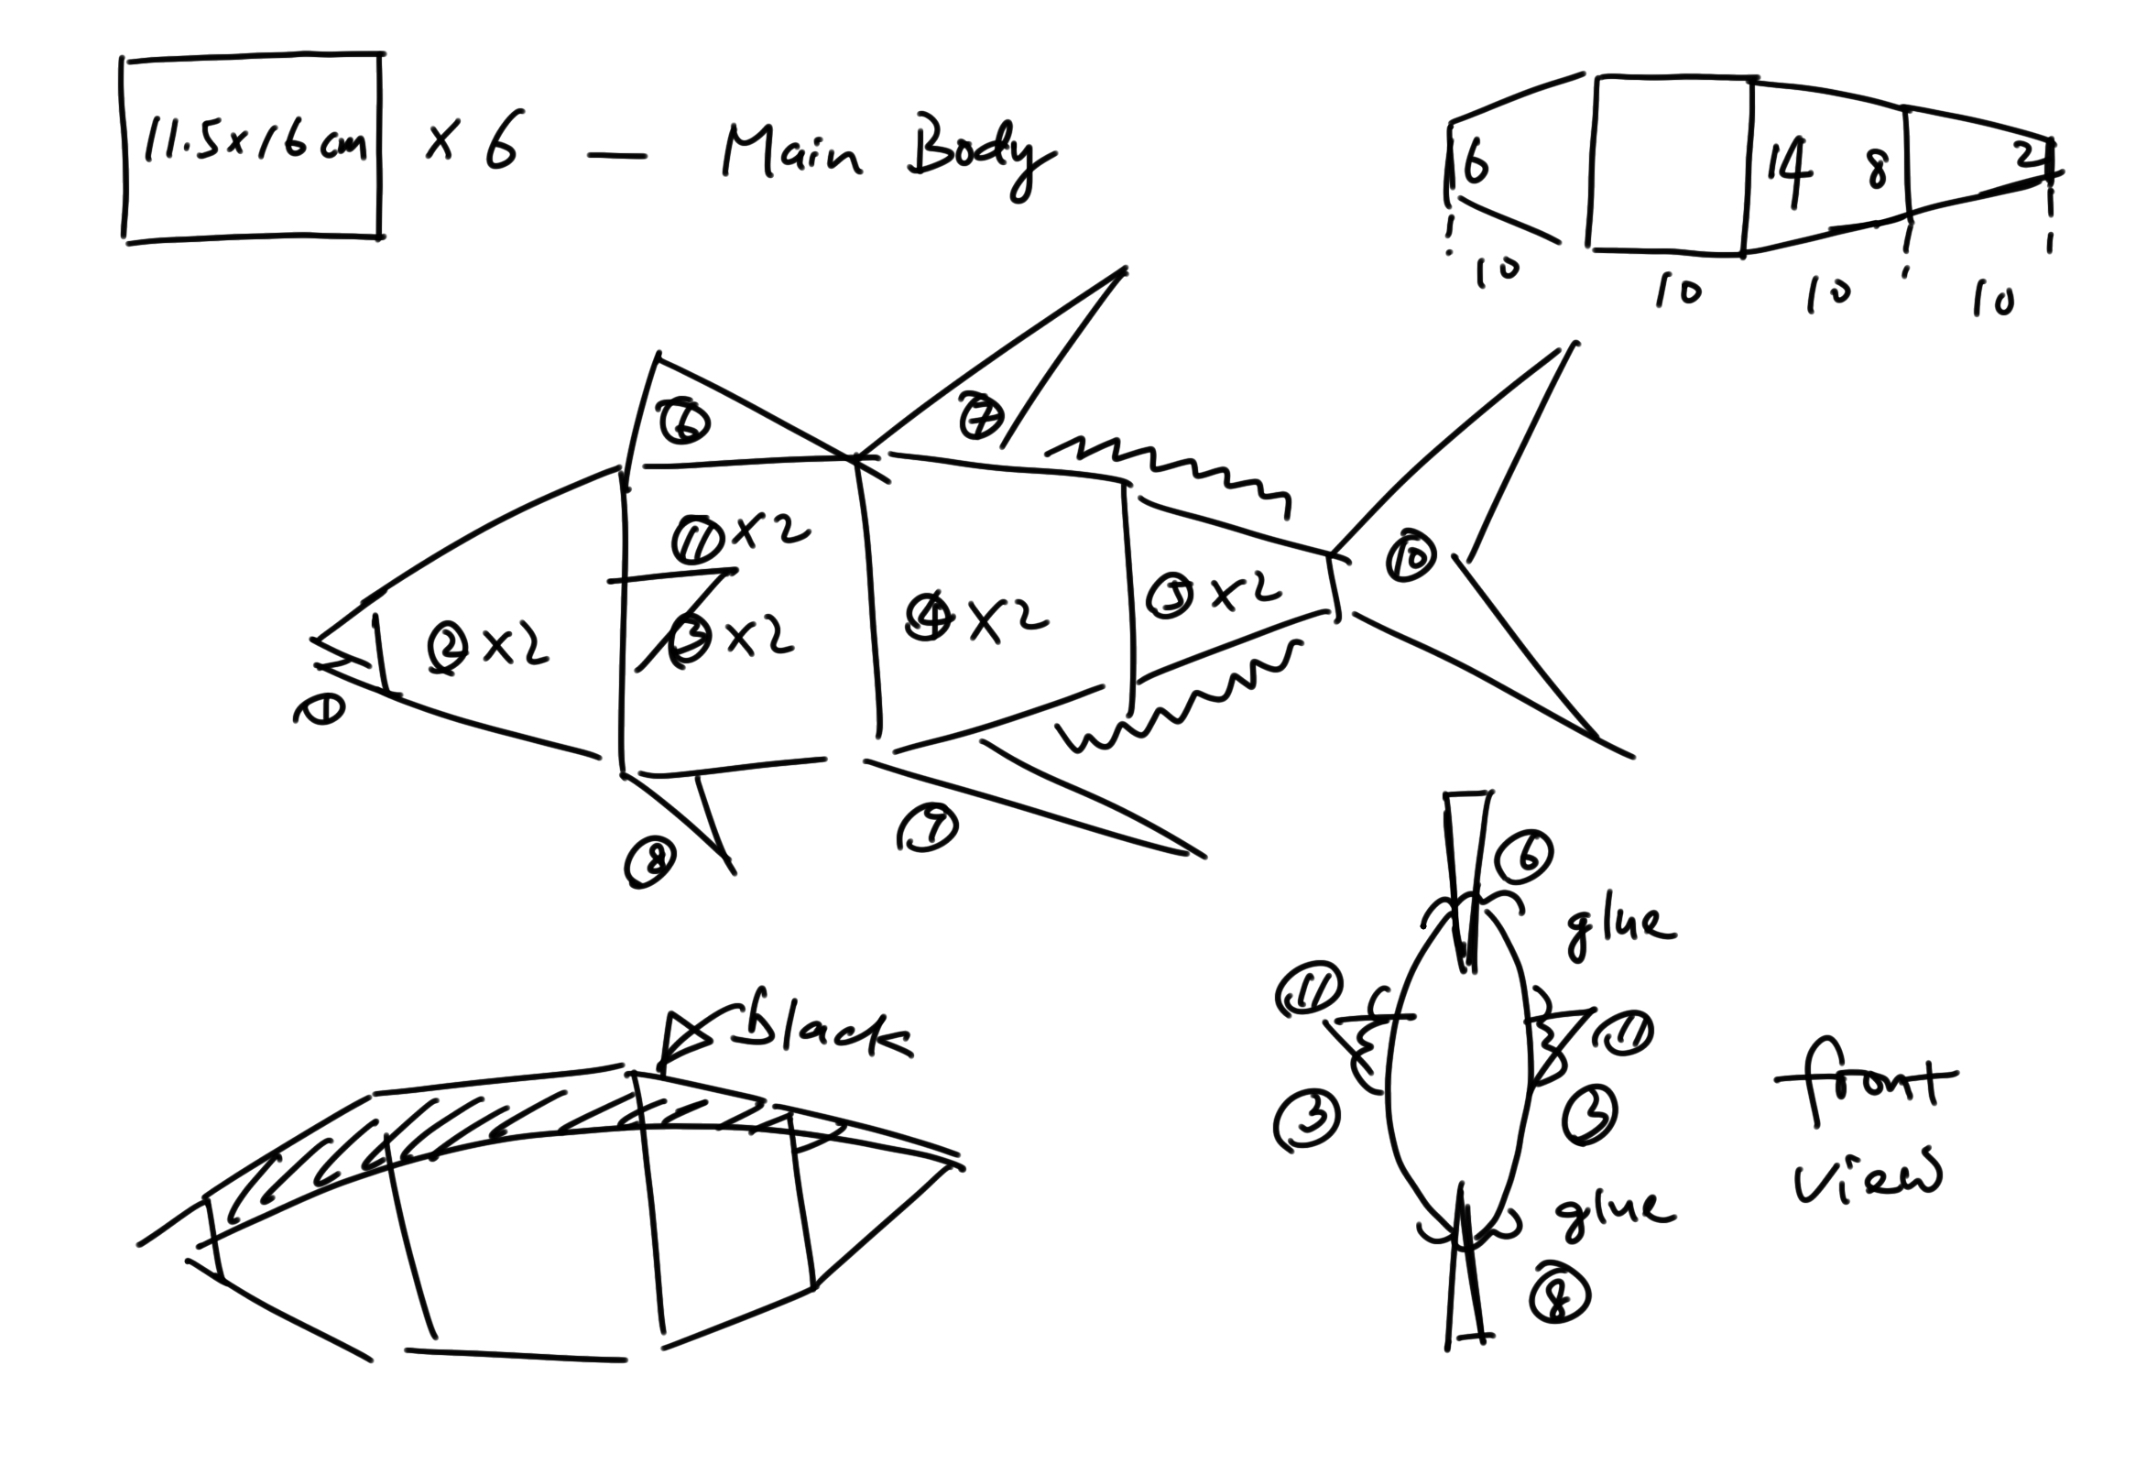 11.5x16cm x6 — Main Body
6 14 8 2
10 10 10 10
⑥ ⑦
⑪x2
① ②x2 ③x2 ④x2 ⑤x2 ⑩
⑧ ⑨
Black
⑥
glue
⑪ ⑪
③ ③
glue
⑧
front
view